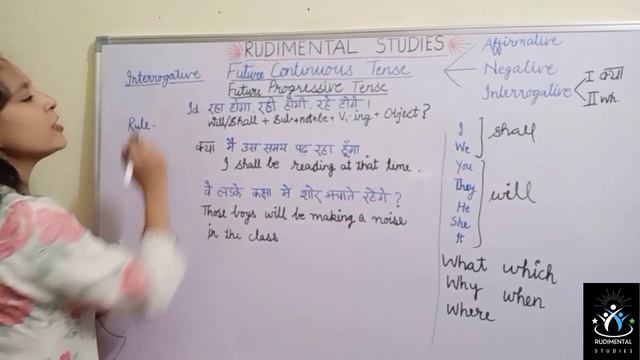 RUDIMENTAL STUDIES
Interrogative
Future Continuous Tense
Future Progressive Tense
Id. रहा होगा, रही होगी, रहे होंगे ।
Rule-
will/shall + Sub+not+be+V₁-ing + Object?
क्या मैं उस समय पढ रहा हूँगा
I shall be reading at that time.
वे लडके कक्षा में शोर मचाते रहेंगे ?
Those boys will be making a noise
in the class.
Affirmative
Negative
Interrogative
I क्या
II Wh.
I
We
shall
You
They
He
She
It
will
What which
Why when
Where
RUDIMENTAL
STUDIES